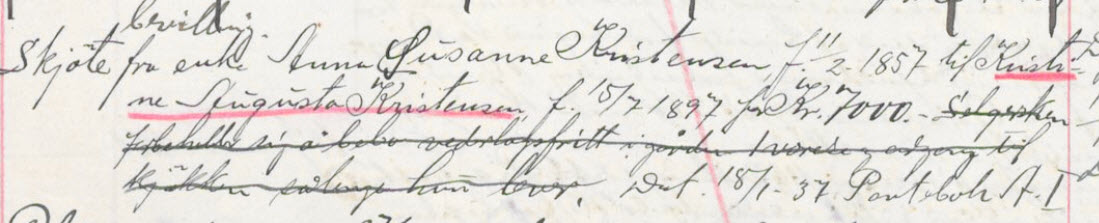 bevilling.
Skjøte fra enke Anna Susanne Kristensen, f. 11/2 1857 til Kristi-
ne Augusta Kristensen, f. 15/7 1897 for Kr. 7000.- Selgersken
forbeholder sig å bebo vederlagsfritt i gården 1 værelse m adgang til
kjøkken sålenge hun lever. Dat. 18/1-37. Pantebok A. I